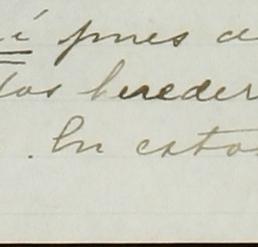 í pues a
los hereder
. En estos